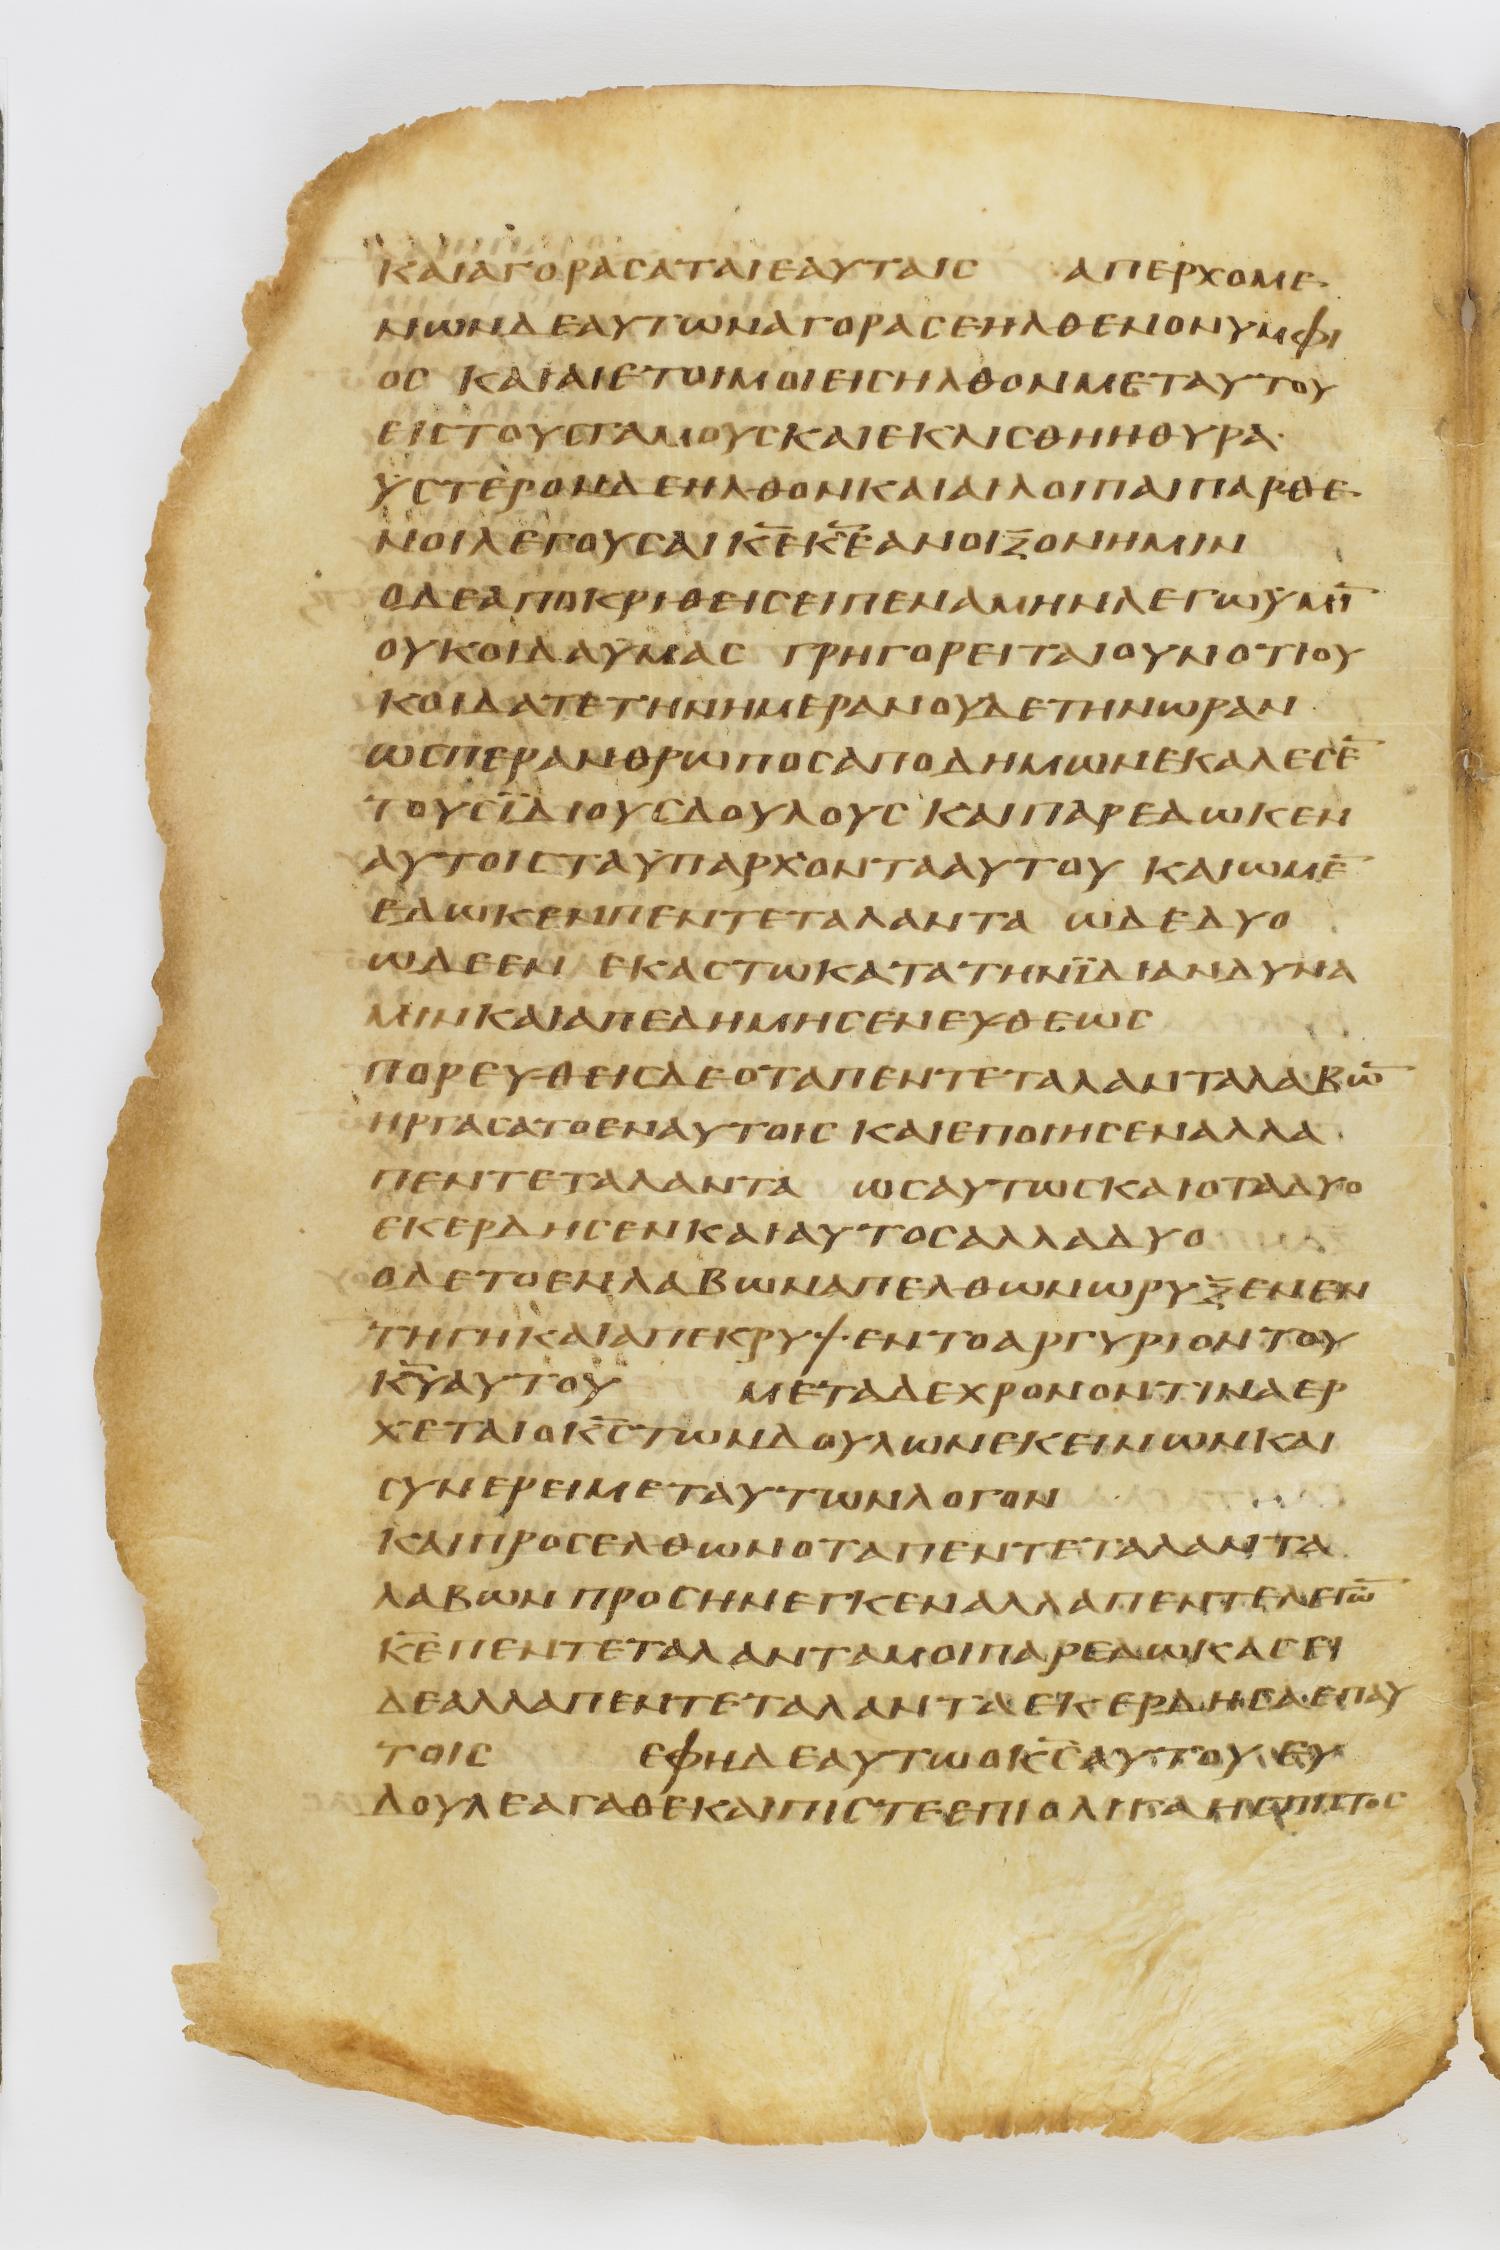 ΚΑΙΑΓΟΡΑСΑΤΑΙΕΑΥΤΑΙС ΑΠΕΡΧΟΜΕ
ΝΩΝΔΕΑΥΤΩΝΑΓΟΡΑСΕΗΛΘΕΝΟΝΥΜΦΙ
ΟС ΚΑΙΑΙΕΤΟΙΜΟΙΕΙСΗΛΘΟΝΜΕΤΑΥΤΟΥ
ΕΙСΤΟΥСΓΑΜΟΥСΚΑΙΕΚΛΙСΘΗΗΘΥΡΑ·
ΥСΤΕΡΟΝΔΕΗΛΘΟΝΚΑΙΑΙΛΟΙΠΑΙΠΑΡΘΕ
ΝΟΙΛΕΓΟΥСΑΙΚ̅Ε̅Κ̅Ε̅ΑΝΟΙΞΟΝΗΜΙΝ
ΟΔΕΑΠΟΚΡΙΘΕΙСΕΙΠΕΝΑΜΗΝΛΕΓΩΥΜΙ̅
ΟΥΚΟΙΔΑΥΜΑС ΓΡΗΓΟΡΕΙΤΑΙΟΥΝΟΤΙΟΥ
ΚΟΙΔΑΤΕΤΗΝΗΜΕΡΑΝΟΥΔΕΤΗΝΩΡΑΝ
ΩСΠΕΡΑΝΘΡΩΠΟСΑΠΟΔΗΜΩΝΕΚΑΛΕСΕ̅
ΤΟΥСΪΔΙΟΥСΔΟΥΛΟΥС ΚΑΙΠΑΡΕΔΩΚΕΝ
ΑΥΤΟΙСΤΑΥΠΑΡΧΟΝΤΑΑΥΤΟΥ ΚΑΙΩΜΕ̅
ΕΔΩΚΕΝΠΕΝΤΕΤΑΛΑΝΤΑ ΩΔΕΔΥΟ
ΩΔΕΕΝ ΕΚΑСΤΩΚΑΤΑΤΗΝΪΔΙΑΝΔΥΝΑ
ΜΙΝΚΑΙΑΠΕΔΗΜΗСΕΝΕΥΘΕΩС
ΠΟΡΕΥΘΕΙСΔΕΟΤΑΠΕΝΤΕΤΑΛΑΝΤΑΛΑΒΩ̅
ΗΡΓΑСΑΤΟΕΝΑΥΤΟΙС ΚΑΙΕΠΟΙΗСΕΝΑΛΛΑ
ΠΕΝΤΕΤΑΛΑΝΤΑ ΩСΑΥΤΩСΚΑΙΟΤΑΔΥΟ
ΕΚΕΡΔΗСΕΝΚΑΙΑΥΤΟСΑΛΛΑΔΥΟ
ΟΔΕΤΟΕΝΛΑΒΩΝΑΠΕΛΘΩΝΩΡΥΞΕΝΕΝ
ΤΗΓΗΚΑΙΑΠΕΚΡΥΨΕΝΤΟΑΡΓΥΡΙΟΝΤΟΥ
Κ̅Υ̅ΑΥΤΟΥ ΜΕΤΑΔΕΧΡΟΝΟΝΤΙΝΑΕΡ
ΧΕΤΑΙΟΚ̅С̅ΤΩΝΔΟΥΛΩΝΕΚΕΙΝΩΝΚΑΙ
СΥΝΕΡΕΙΜΕΤΑΥΤΩΝΛΟΓΟΝ
ΚΑΙΠΡΟСΕΛΘΩΝΟΤΑΠΕΝΤΕΤΑΛΑΝΤΑ
ΛΑΒΩΝΠΡΟСΗΝΕΓΚΕΝΑΛΛΑΠΕΝΤΕΛΕΓΩ̅
Κ̅Ε̅ΠΕΝΤΕΤΑΛΑΝΤΑΜΟΙΠΑΡΕΔΩΚΑСΕΙ
ΔΕΑΛΛΑΠΕΝΤΕΤΑΛΑΝΤΑΕΚΕΡΔΗСΑΕΠΑΥ
ΤΟΙС ΕΦΗΔΕΑΥΤΩΟΚ̅С̅ΑΥΤΟΥΕΥ
ΔΟΥΛΕΑΓΑΘΕΚΑΙΠΙСΤΕΕΠΙΟΛΙΓΑΗСΠΙСΤΟС